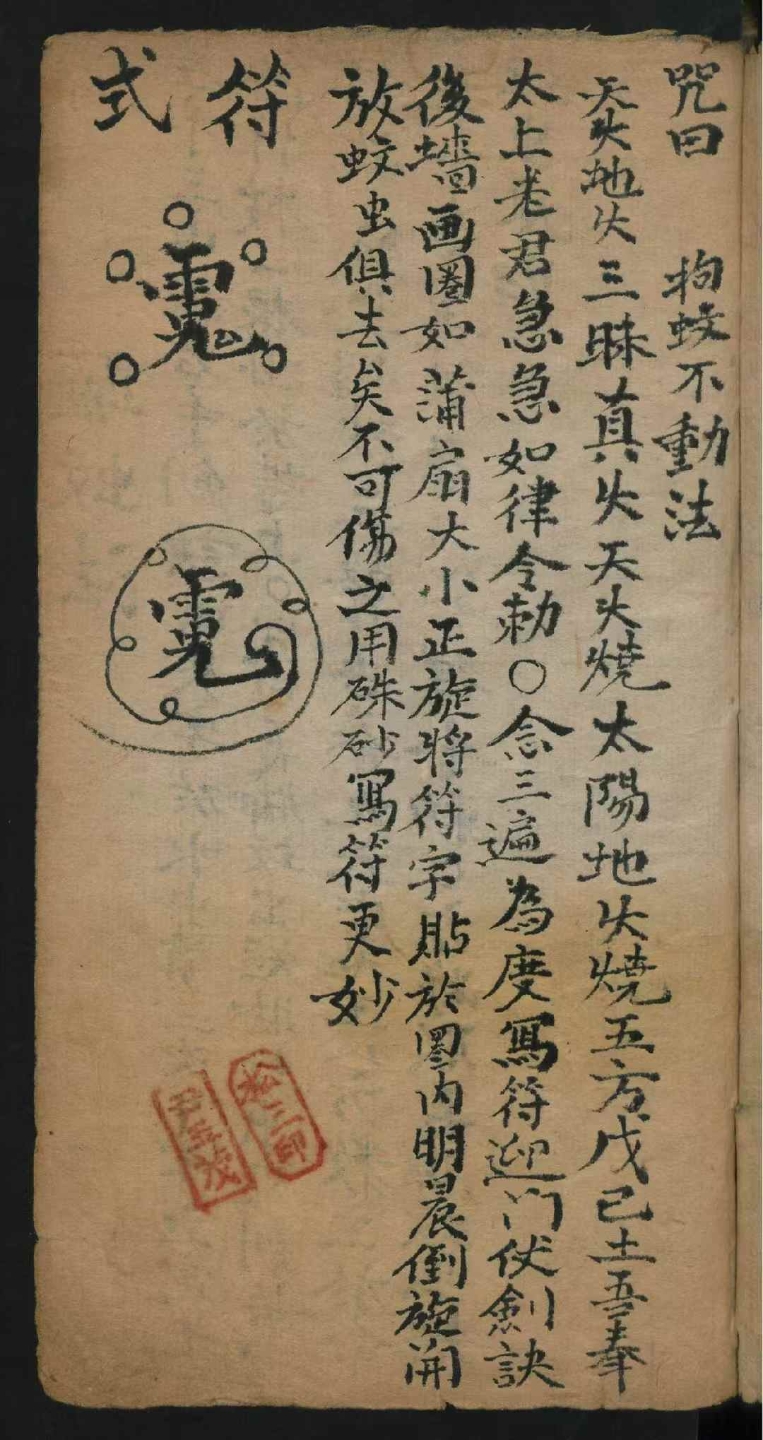 咒曰　拘蚊不動法
天火地火三昧真火天火燒太陽地火燒五方戊己土吾奉
太上老君急急如律令勅〇念三遍為度寫符迎门伏劍訣
後墻画圈如蒲扇大小正旋将符字貼於圏内明晨倒旋開
放蚊虫俱去矣不可傷之用硃砂寫符更妙
符式